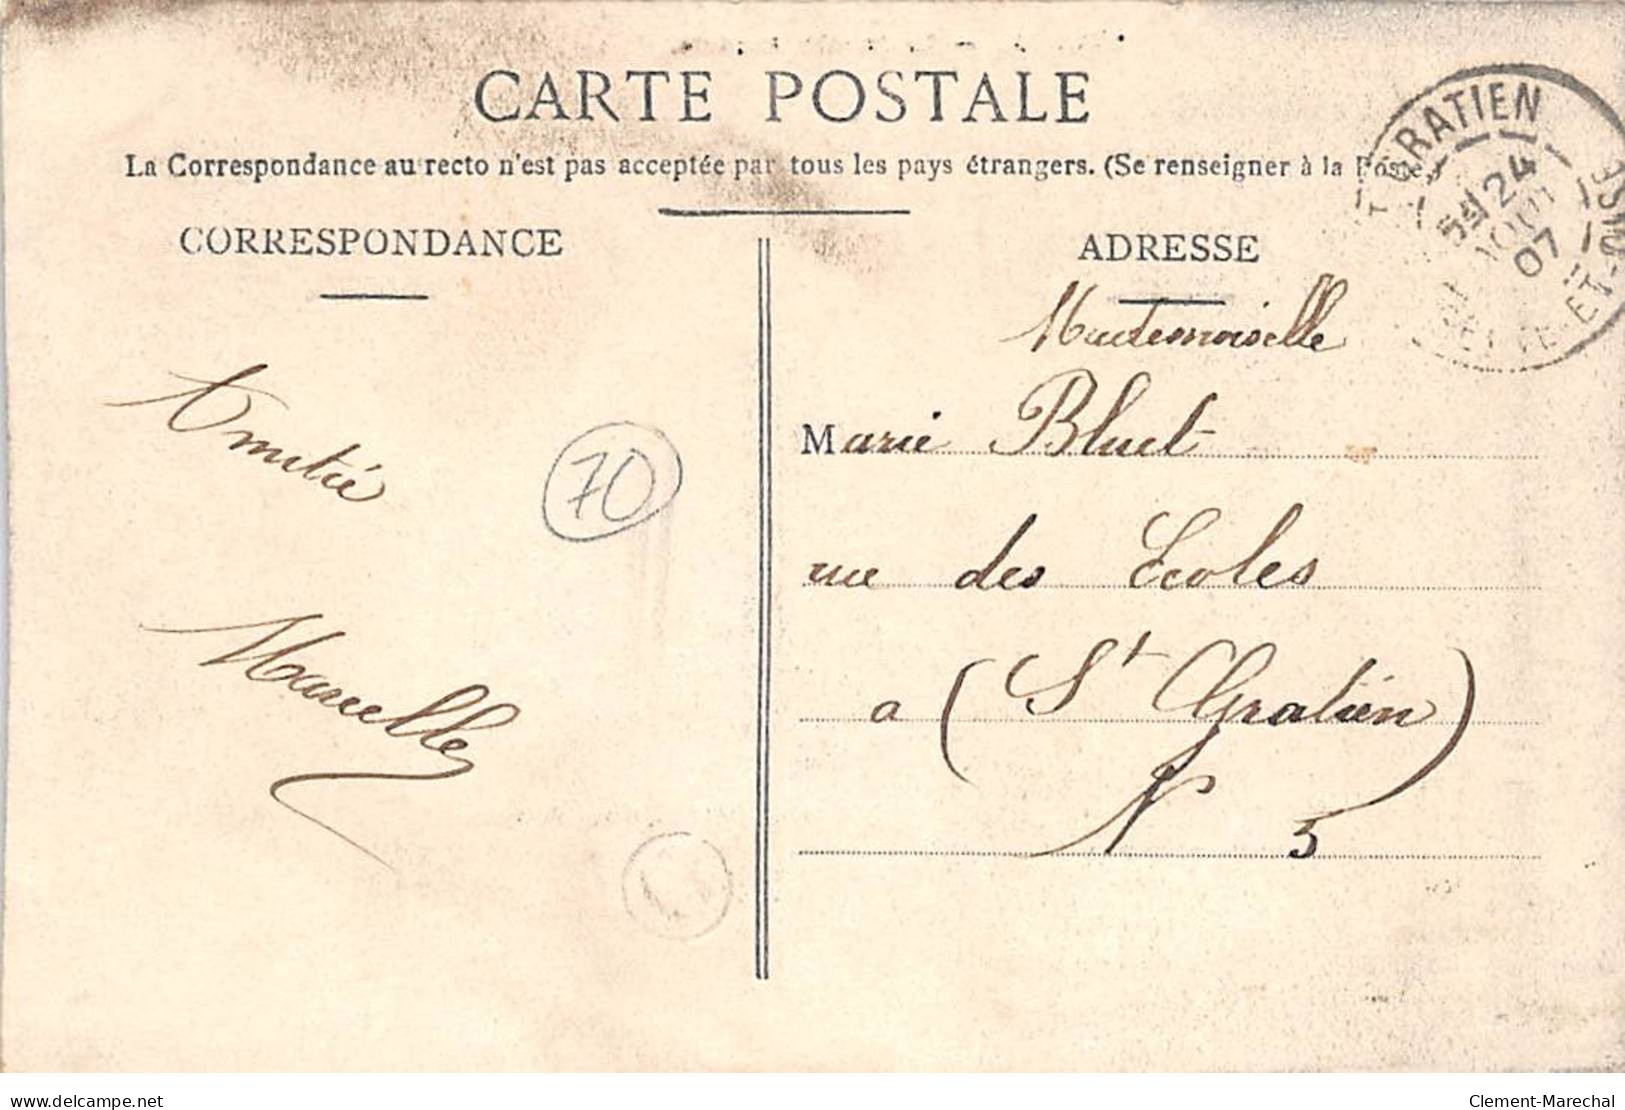 CARTE POSTALE
La Correspondance au recto n'est pas acceptée par tous les pays étrangers. (Se renseigner à la Poste)
CORRESPONDANCE
Amitié
70
Marcelle
ADRESSE
Mademoiselle
Marie Bluet
rue des Ecoles
a (St Gratien)
N 5
T GRATIEN
24
AOUT
07
ET-OISE
www.delcampe.net
Clement-Marechal